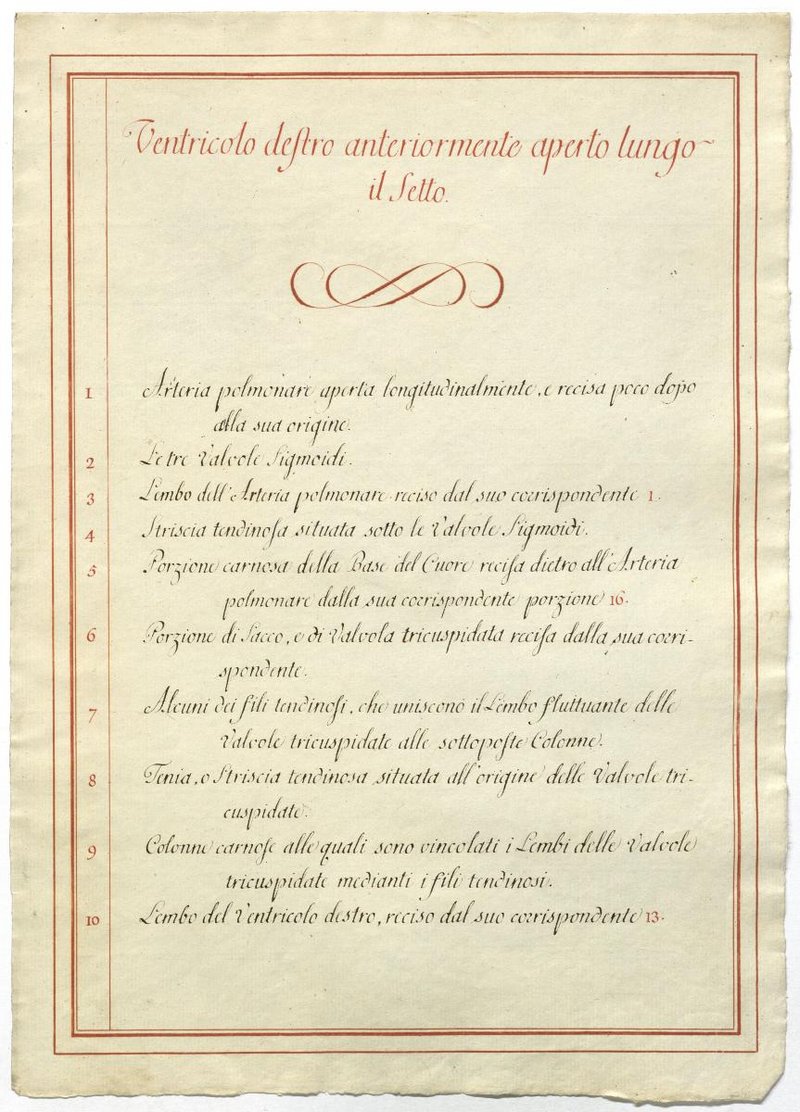 Ventricolo deſtro anteriormente aperto lungo
il Setto.
1 Arteria polmonare aperta longitudinalmente, e recisa poco dopo
alla sua origine.
2 Le tre Valvole Sigmoidi.
3 Lembo dell'Arteria polmonare reciso dal suo corrispondente 1.
4 Striscia tendinoſa situata sotto le Valvole Sigmoidi.
5 Porzione carnosa della Base del Cuore reciſa dietro all'Arteria
polmonare dalla sua corrispondente porzione 16.
6 Porzione di Sacco, e di Valvola tricuspidata reciſa dalla sua corri-
spondente.
7 Alcuni dei fili tendinoſi, che uniscono il Lembo fluttuante delle
Valvole tricuspidate alle sottopoſte Colonne.
8 Tenia, o Striscia tendinosa situata all'origine delle Valvole tri-
cuspidate.
9 Colonne carnoſe alle quali sono vincolati i Lembi delle Valvole
tricuspidate medianti i fili tendinosi.
10 Lembo del Ventricolo destro, reciso dal suo corrispondente 13.